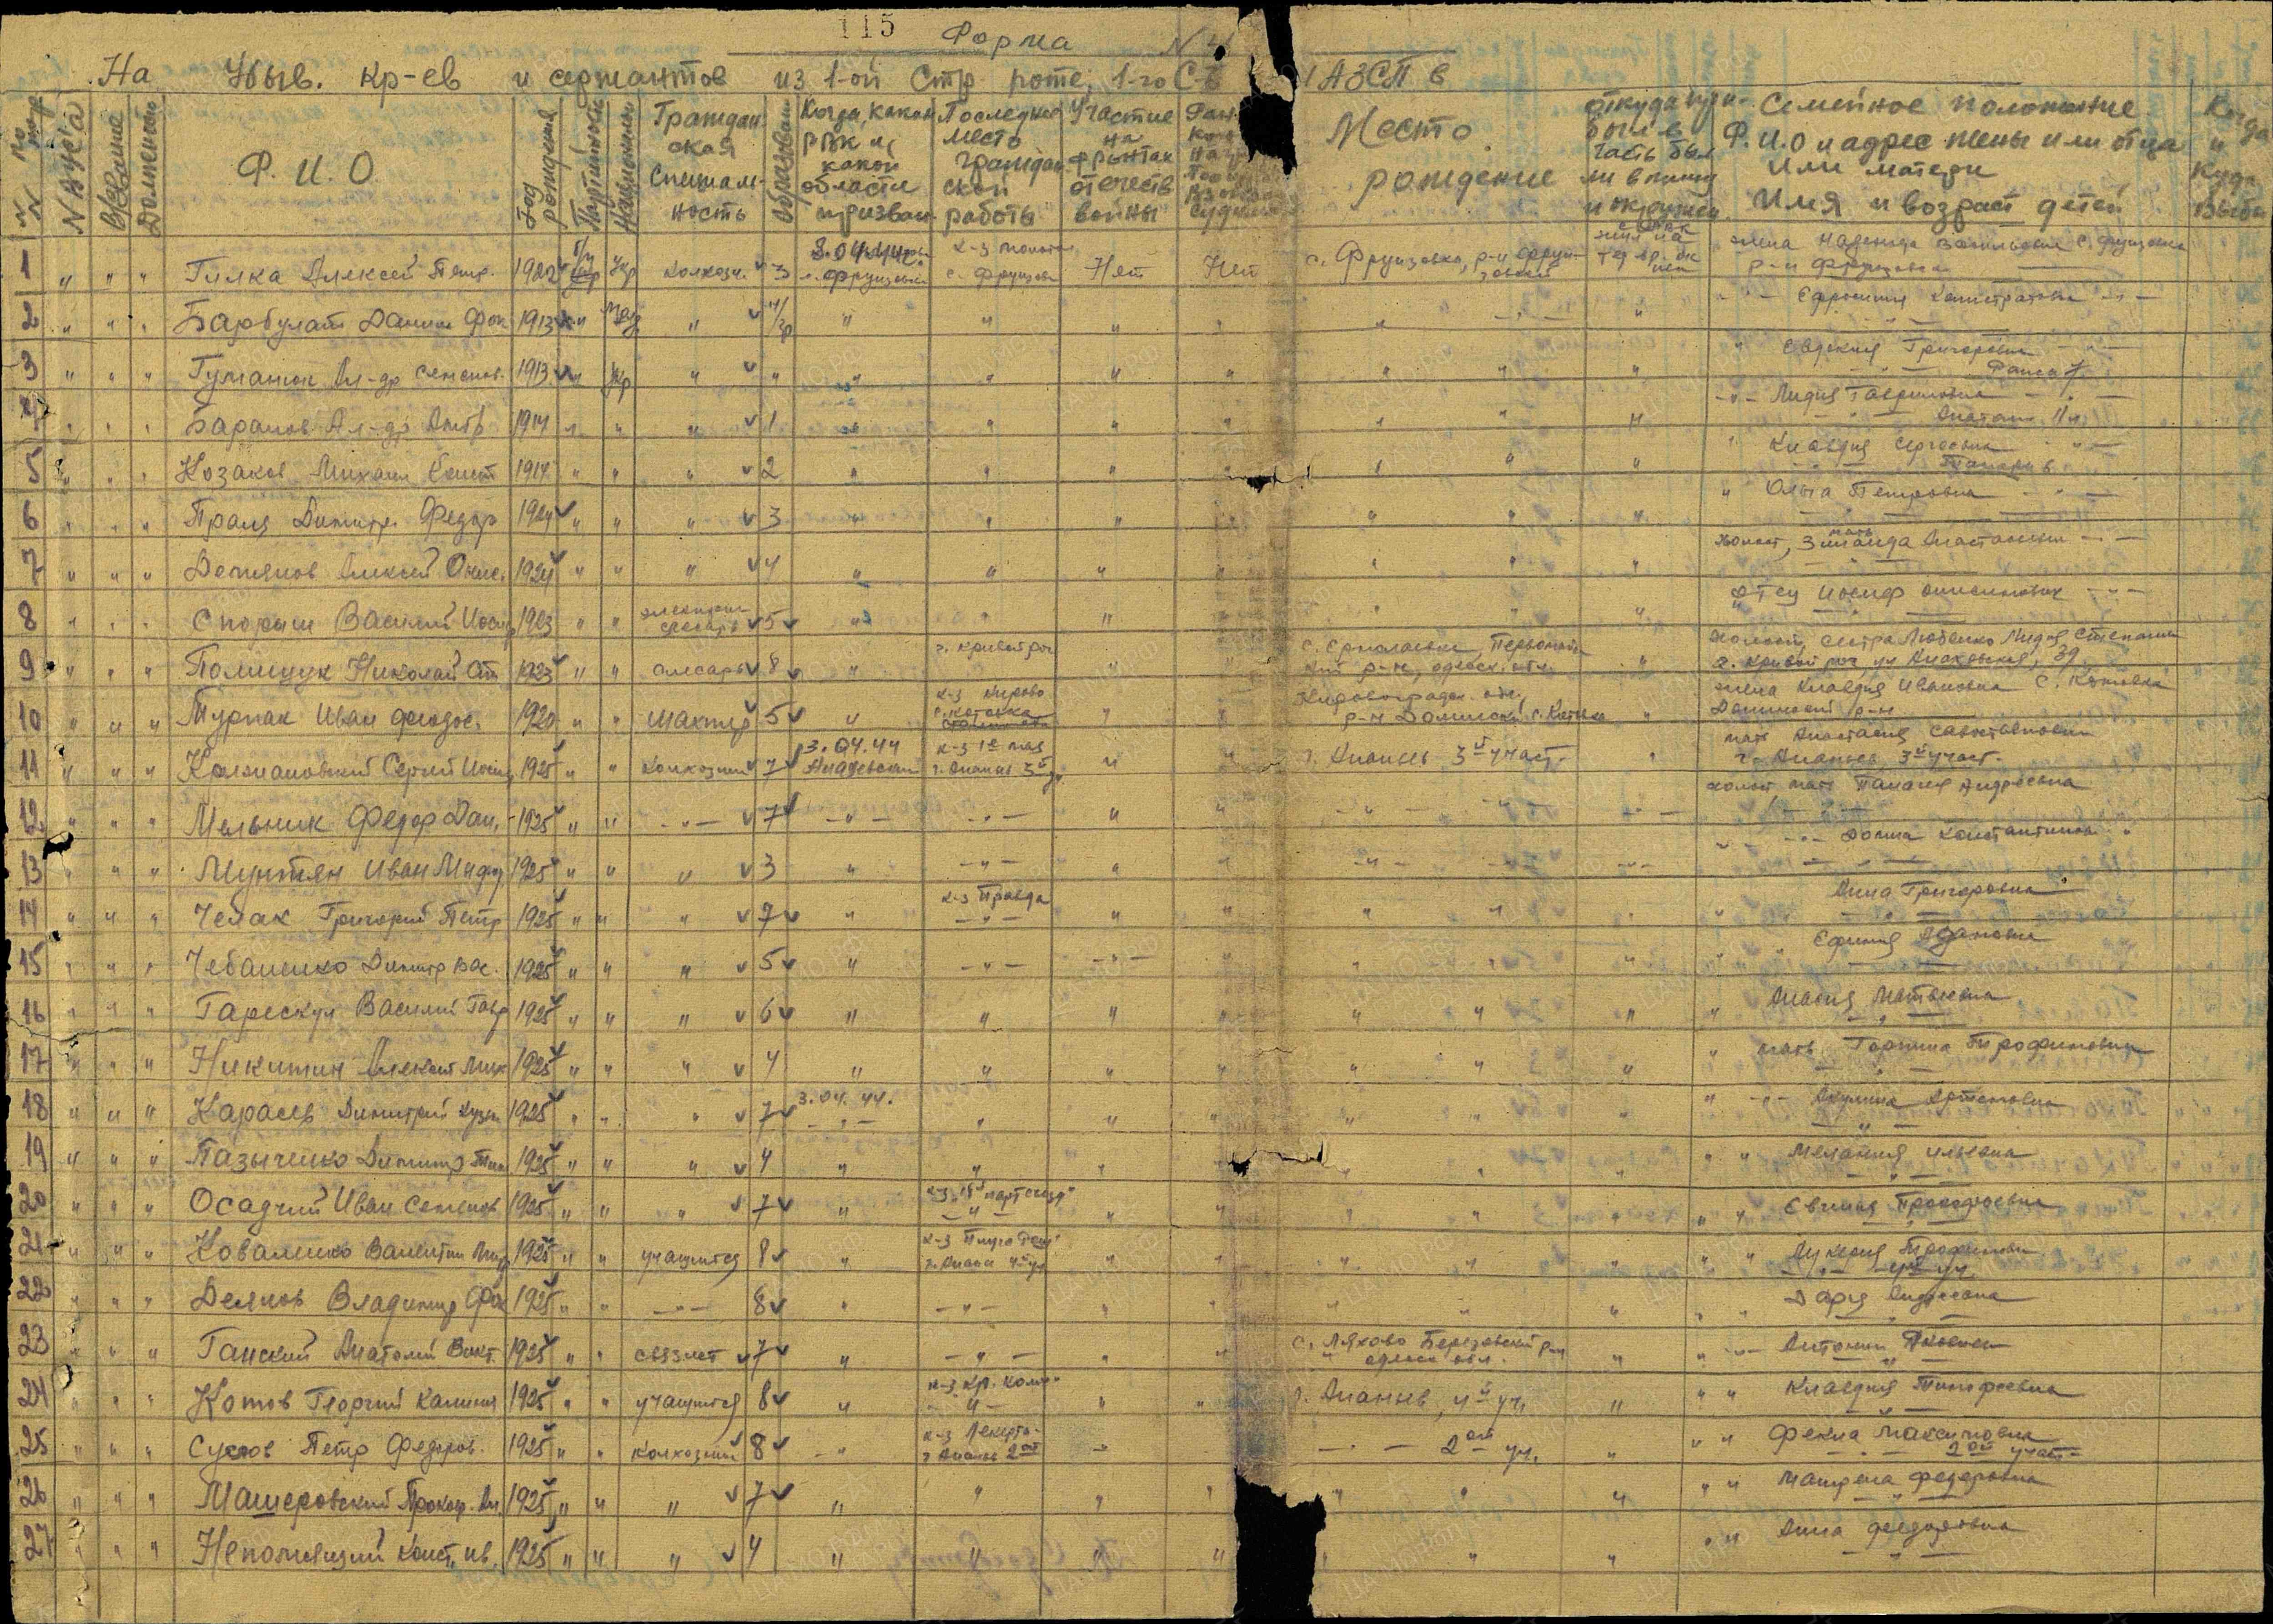 115 Форма N 4
На убыв. кр-ев и сержантов из 1-ой стр. роте, 1-го С-Б 1 АЗСП в
N N по пор. N ВУС'а В/звание Должность Ф. И. О. Год рождения Партийность Национальн. Граждан- ская специаль- ность Образован. Когда, каким РВК и какой области призван Последнее место граждан- ской работы Участие на фронтах отечеств войны Место рождение откуда при- был в часть был ли в плену и окружен. Семейное положение Ф. И. О и адрес жены или отца или матери Имя и возраст детей Когда и куда выбыл
1 " " " Гилка Алексей Петр. 1922 б/п Укр колхозн. 3 3.04.44г. Фрунзовск с. Фрунзовк Нет Нет с. Фрунзовка, р-н Фрун- зовский жена Надежда Васильевна с. Фрунзовка р-н Фрунзовка
2 " " " Барбулат Данил Фок 1913 " Мол " н/гр " " " " " - " - " " - Ефросиния Калистратовна - " -
3 " " " Гуманюк Ал-др Семенов. 1913 " Укр " " " " " " " " " " Евдокия Григоровна - " -
4 " " " Баранов Ал-др Антр 1914 " " " 1 " " " " " " " - " - Лидия Гавриловна - " - Анатол 11 л
5 " " " Козаков Михаил Конст 1914 " " " 2 " " " " " " " " Клавдия Сергеевна " -
6 " " " Праля Димитр. Федор 1924 " " " 3 " " " " " " " " Ольга Петровна - " -
7 " " " Демянов Алексей Онис. 1924 " " " 4 " " " " " " " холост, мать Зинаида Анастасьевн - " -
8 " " " Спорыш Василий Иосиф 1923 " " электрик слесарь 5 " " " " " " " отец Иосиф Онисимович - " -
9 " " " Полищук Николай Ст 1923 " " слесарь 8 " г. Кривой рог " " с. Ермолаевка, Первомай- кий р-н, одесск. обл. " холост, сестра Любенко Лидия Степановн г. Кривой рог ул Анаевская, 39
10 " " " Турпак Иван Феодос. 1920 " " шахтер 5 " к-з Кирово с. Котовка " " Кировоградск. обл. р-н Долинский с. Котовка " жена Клавдия Ивановна с. Котовка Долинский р-н
11 " " " Кржиановский Сергей Иосиф 1925 " " колхозник 7 3.04.44 Ананьевский к-з 1е мая г. Ананьев 3й уч " " г. Ананьев 3й участ. " мать Анастасия Савостьяновн г. Ананьев 3й участ.
12 " " " Мельник Федор Дан. 1925 " " - " - 7 - " - - " - " " - " - - " - холост мать Палагея Андреевна
13 " " " Мунтян Иван Мифод 1925 " " " 3 " - " - " - " - - " - - " - Домна Константинов "
14 " " " Челак Григорий Петр 1925 " " " 7 " к-з Правда - " - " " " " " " Анна Григоровна
15 " " " Чебаненко Димитр Вас. 1925 " " " 5 " - " - - " - " " " " Ефимия Ивановна
16 " " " Гарескул Василий Гавр 1925 " " " 6 " " " " " " " " Анания Матвеевна
17 " " " Никитин Алексей Мих 1925 " " " 4 " " " " " " " " мать Горпина Трофимовна
18 " " " Карасев Димитрий Кузм 1925 " " " 7 3.04.44. - " - " " " " " " " - " - Акулина Артемовна
19 " " " Пазыченко Димитр Тим 1925 " " " 4 " " " " " " " " " Мелания Ильевна
20 " " " Осадчий Иван Семенов 1925 " " " 7 " к-з "18й партсъезд" - " - " " " " " " " Евгения Прокофьевна
21 " " " Коваленко Валентин Мих 1925 " " учащийся 8 " г. Анань 4й уч " " " " " " " Лукерия Трофимовн - " - 4й уч.
22 " " " Делнов Владимир Фок 1925 " " - " - 8 " - " - " " " " " " " Дария Андреевна
23 " " " Ганский Анатолий Викт. 1925 " " связист 7 " - " - " " с. Ляхово Березовский р-н одесс обл. " " - " - Антонин Яковлев
24 " " " Котов Георгий Калини 1925 " " учащийся 8 " к-з Кр. Колос - " - " " г. Ананьев, 4й уч. " " " Клавдия Тимофеевна
25 " " " Суслов Петр Федоров. 1925 " " колхозник 8 - " г Ананьев 2ой - " - - " - 2ой уч. " " " Фекла Максимовна 2ой участ
26 " " " Машеровский Прокоф. Ан. 1925 " " " 7 " " " " " " " " " Матрена Федоровна
27 " " " Непомнящий Конст. Ив. 1925 " " " 4 " " " " " " " " " Анна Федоровна